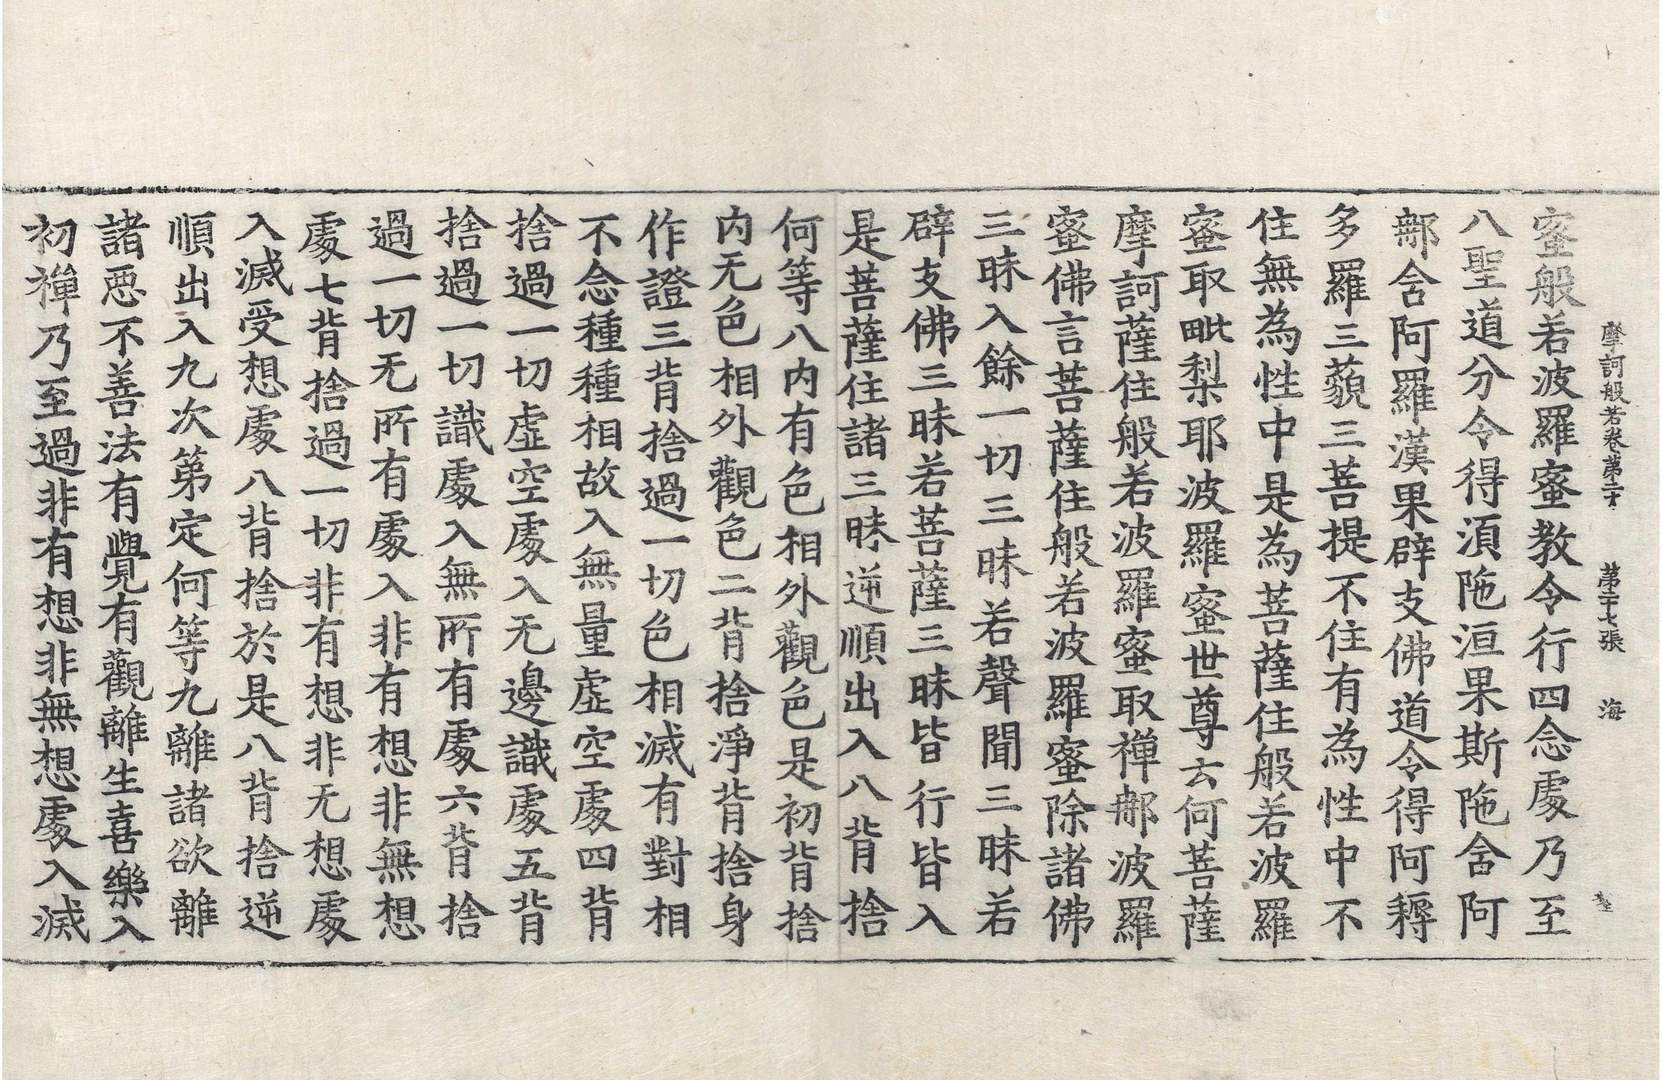 摩訶般若卷第二十　第二十七張　海
蜜般若波羅蜜教令行四念處乃至
八聖道分令得湏陁洹果斯陁含阿
𨚗含阿羅漢果辟支佛道令得阿耨
多羅三藐三菩提不住有為性中不
住無為性中是為菩薩住般若波羅
蜜取毗梨耶波羅蜜世尊云何菩薩
摩訶薩住般若波羅蜜取禪𨚗波羅
蜜佛言菩薩住般若波羅蜜除諸佛
三昧入餘一切三昧若聲聞三昧若
辟支佛三昧若菩薩三昧皆行皆入
是菩薩住諸三昧逆順出入八背捨
何等八内有色相外觀色是初背捨
内无色相外觀色二背捨淨背捨身
作證三背捨過一切色相滅有對相
不念種種相故入無量虛空處四背
捨過一切虛空處入无邊識處五背
捨過一切識處入無所有處六背捨
過一切无所有處入非有想非無想
處七背捨過一切非有想非无想處
入滅受想處八背捨於是八背捨逆
順出入九次第定何等九離諸欲離
諸惡不善法有覺有觀離生喜樂入
初禪乃至過非有想非無想處入滅